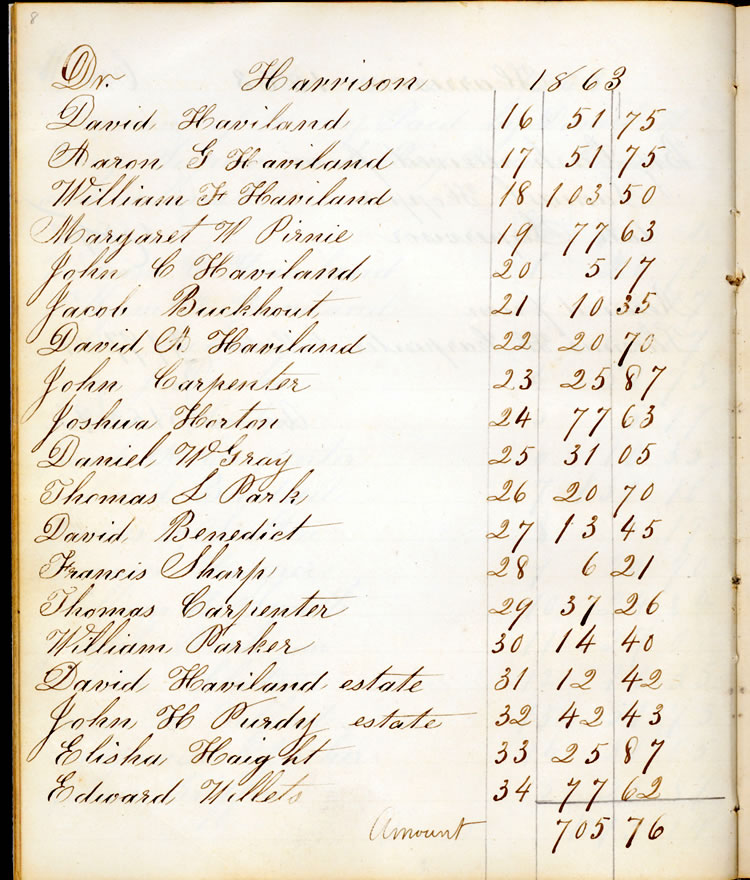 8
Dr. Harrison 1863
David Haviland 16 51 75
Aaron G Haviland 17 51 75
William F Haviland 18 103 50
Margaret W Pirnie 19 77 63
John C Haviland 20 5 17
Jacob Buckhout 21 10 35
David R Haviland 22 20 70
John Carpenter 23 25 87
Joshua Horton 24 77 63
Daniel W Gray 25 31 05
Thomas L Park 26 20 70
David Benedict 27 13 45
Francis Sharp 28 6 21
Thomas Carpenter 29 37 26
William Parker 30 14 40
David Haviland estate 31 12 42
John H Purdy estate 32 42 43
Elisha Haight 33 25 87
Edward Willets 34 77 62
Amount 705 76